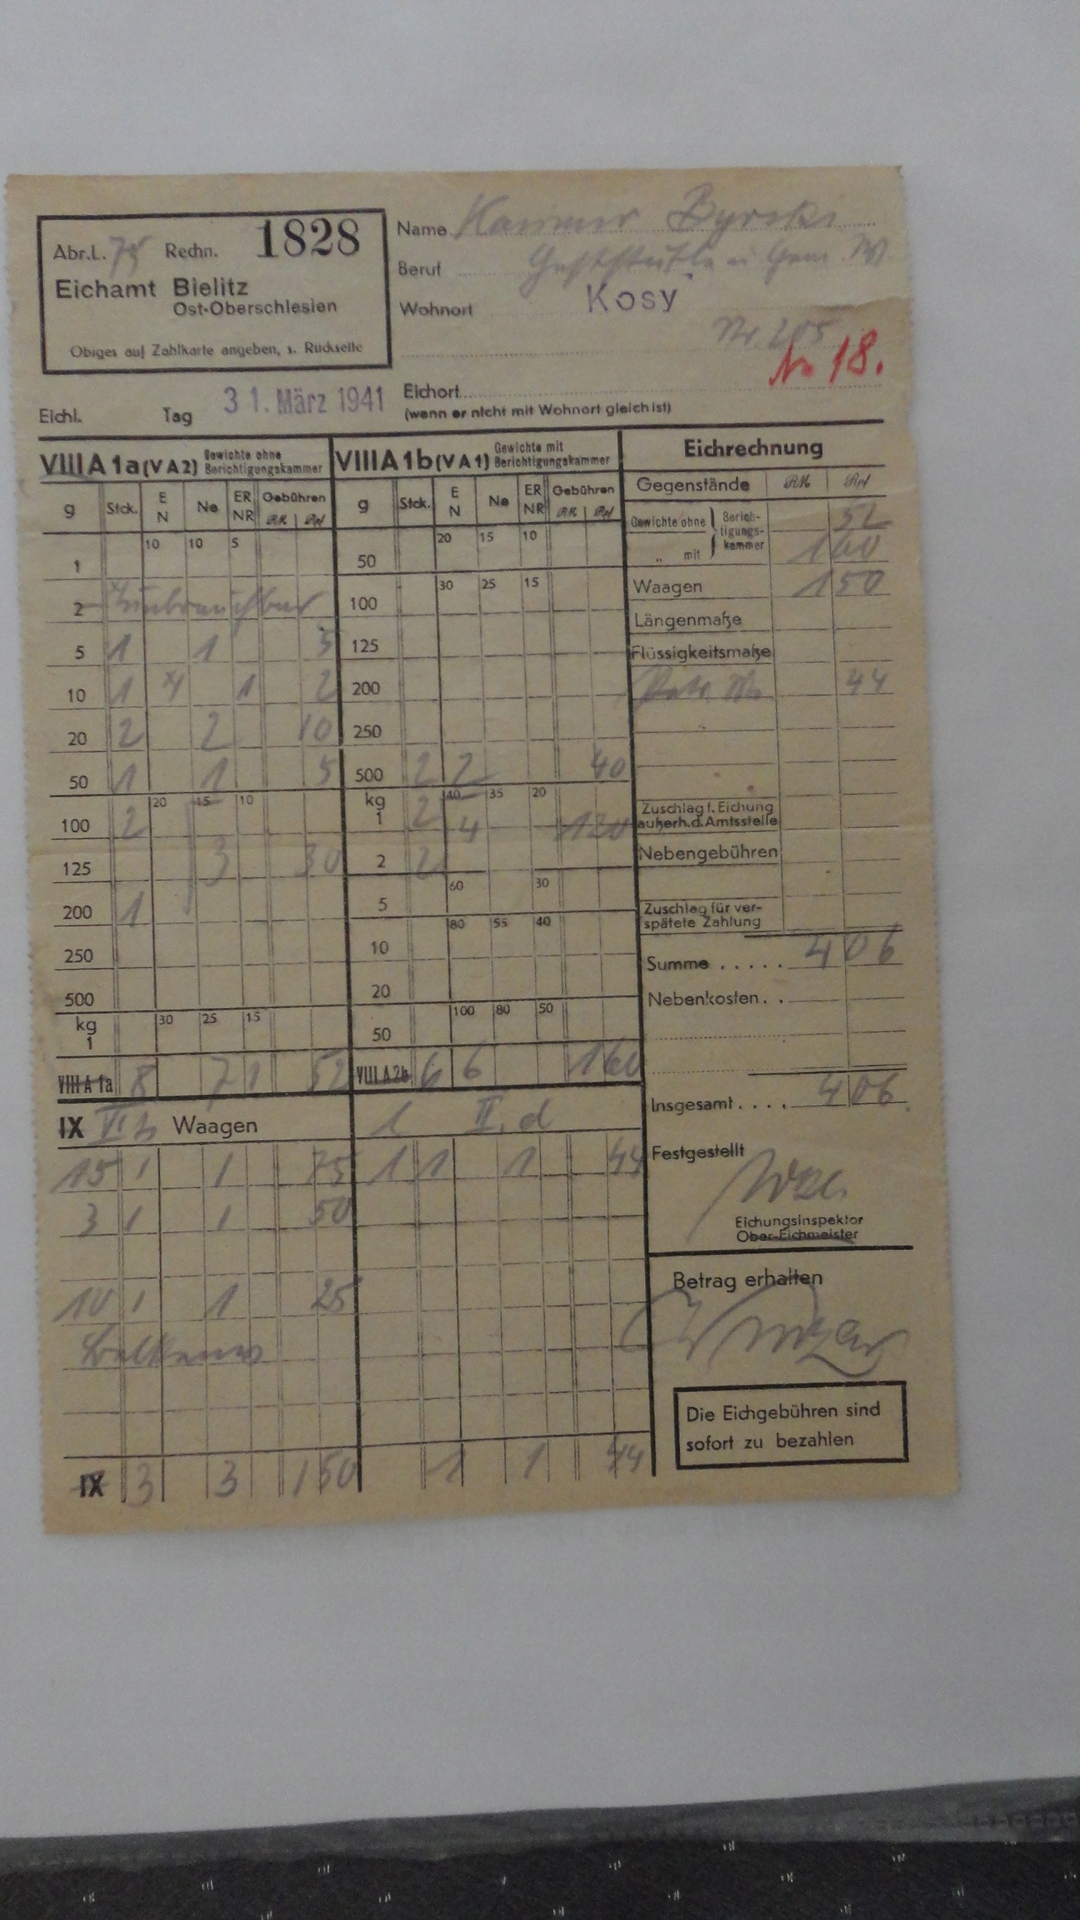 Abr.L. 75 Rechn. 1828
Eichamt Bielitz
Ost-Oberschlesien
Obiges auf Zahlkarte angeben, s. Rückseite
Name Byrski
Beruf
Wohnort Kosy
Nr. 205
No 18.
Eichl. Tag 31. März 1941
Eichort
(wenn er nicht mit Wohnort gleich ist)
VIII A 1a (V A 2) Gewichte ohne Berichtigungskammer
g Stck. E N Ne ER NR Gebühren RM Rpf
1 10 10 5
2 unbrauchbar
5 1 1 5
10 1 1 2
20 2 2 10
50 1 1 5
20 15 10
100 2
125 3 30
200 1
250
500
kg 1 30 25 15
VIII A 1a 8 7 1 52
VIII A 1b (V A 1) Gewichte mit Berichtigungskammer
g Stck. E N Ne ER NR Gebühren RM Rpf
50 20 15 10
100 30 25 15
125
200
250
500 2 2 40
kg 1 2 40 35 20
4 120
2 2
5 60 30
10 80 55 40
20
50 100 80 50
VIII A 2b 6 6 160
Eichrechnung
Gegenstände RM Rpf
Gewichte ohne Berichtigungskammer 52
„ mit 1 60
Waagen 1 50
Längenmaße
Flüssigkeitsmaße
44
Zuschlag f. Eichung
außerh. d. Amtsstelle
Nebengebühren
Zuschlag für ver-
spätete Zahlung
Summe ..... 4 06
Nebenkosten ..
Insgesamt .... 4 06
Festgestellt
Eichungsinspektor
Ober-Eichmeister
Betrag erhalten
Die Eichgebühren sind
sofort zu bezahlen
IX Waagen
15 1 1 75
3 1 1 50
10 1 1 25
IX 3 3 1 50
II. d
1 1 1 44
1 1 44